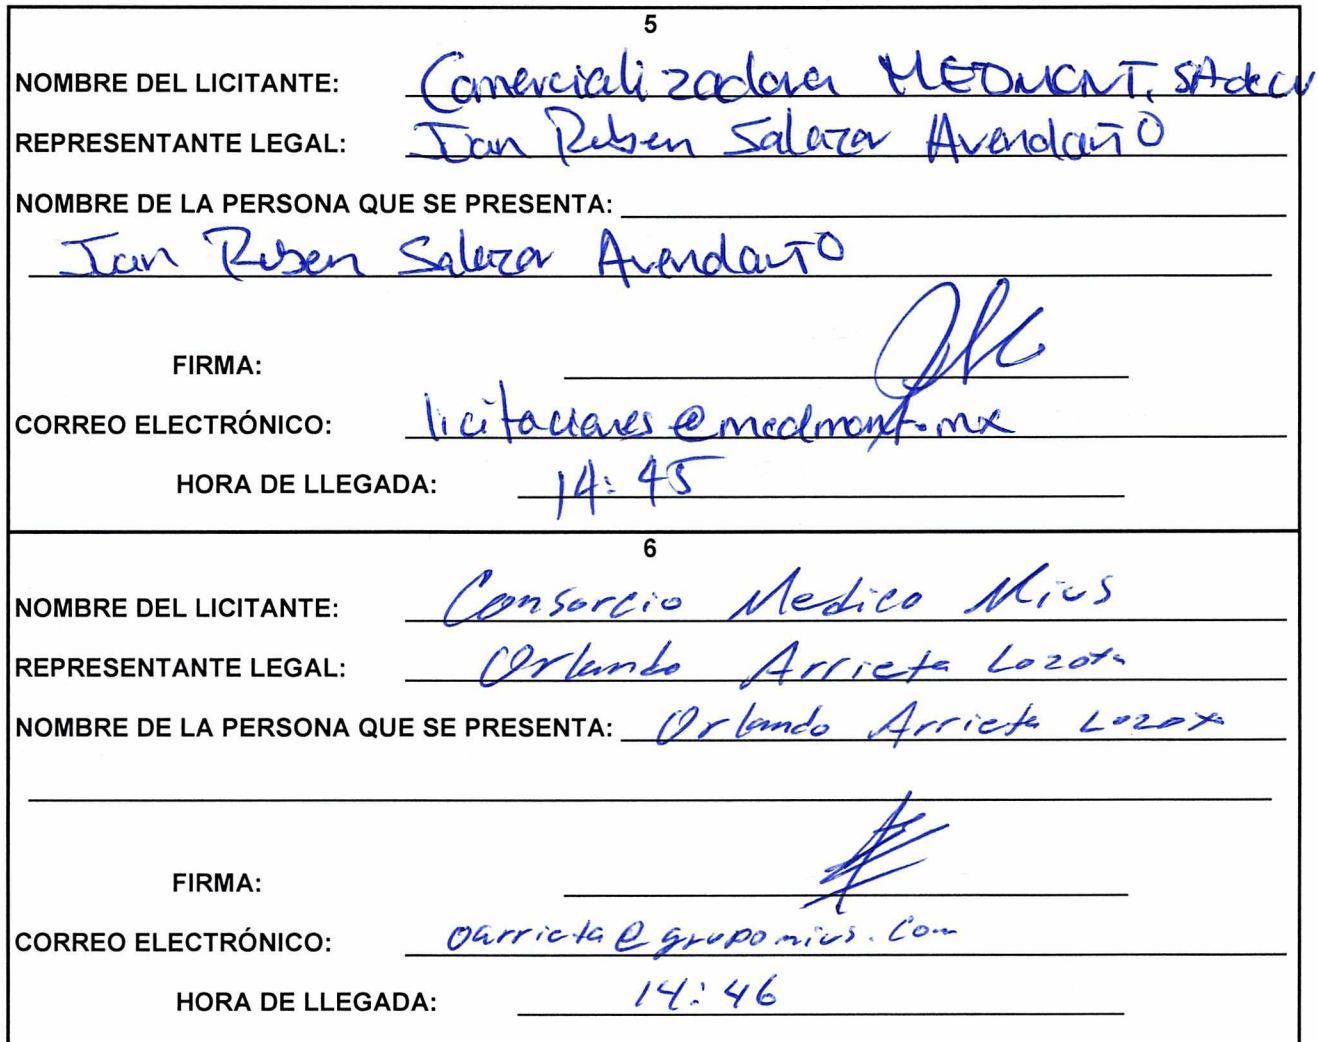 5
NOMBRE DEL LICITANTE: Comercializadora MEDMONT, SA de CV
REPRESENTANTE LEGAL: Ian Ruben Salazar Avendaño
NOMBRE DE LA PERSONA QUE SE PRESENTA:
Ian Ruben Salazar Avendaño
FIRMA:
CORREO ELECTRÓNICO: licitaciones@medmont.mx
HORA DE LLEGADA: 14:45
6
NOMBRE DEL LICITANTE: Consorcio Medico Mius
REPRESENTANTE LEGAL: Orlando Arrieta
NOMBRE DE LA PERSONA QUE SE PRESENTA: Orlando Arrieta
FIRMA:
CORREO ELECTRÓNICO: oarrieta@grupomius.com
HORA DE LLEGADA: 14:46